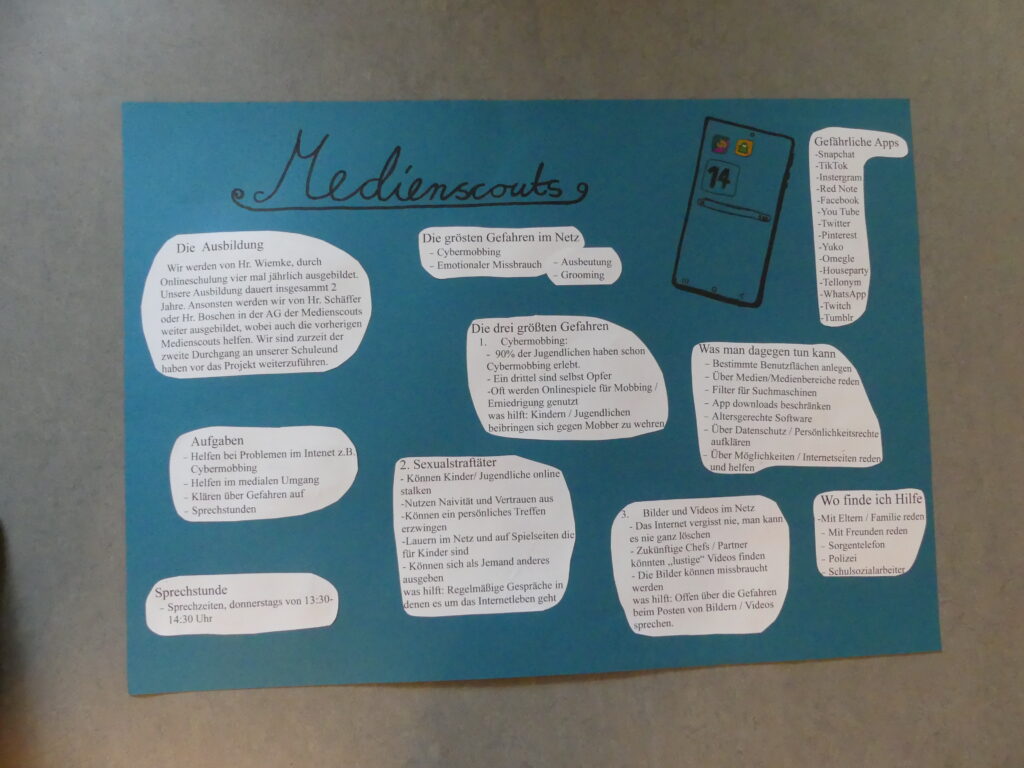 Medienscouts
14
Die Ausbildung
Wir werden von Hr. Wiemke, durch
Onlineschulung vier mal jährlich ausgebildet.
Unsere Ausbildung dauert insgesammt 2
Jahre. Ansonsten werden wir von Hr. Schäffer
oder Hr. Boschen in der AG der Medienscouts
weiter ausgebildet, wobei auch die vorherigen
Medienscouts helfen. Wir sind zurzeit der
zweite Durchgang an unserer Schuleund
haben vor das Projekt weiterzuführen.
Aufgaben
- Helfen bei Problemen im Intenet z.B.
Cybermobbing
- Helfen im medialen Umgang
- Klären über Gefahren auf
- Sprechstunden
Sprechstunde
- Sprechzeiten, donnerstags von 13:30-
14:30 Uhr
Die grösten Gefahren im Netz
- Cybermobbing
- Emotionaler Missbrauch
- Ausbeutung
- Grooming
Die drei größten Gefahren
1. Cybermobbing:
- 90% der Jugendlichen haben schon
Cybermobbing erlebt.
- Ein drittel sind selbst Opfer
-Oft werden Onlinespiele für Mobbing /
Erniedrigung genutzt
was hilft: Kindern / Jugendlichen
beibringen sich gegen Mobber zu wehren
2. Sexualstraftäter
- Können Kinder/ Jugendliche online
stalken
-Nutzen Naivität und Vertrauen aus
-Können ein persönliches Treffen
erzwingen
-Lauern im Netz und auf Spielseiten die
für Kinder sind
- Können sich als Jemand anderes
ausgeben
was hilft: Regelmäßige Gespräche in
denen es um das Internetleben geht
3. Bilder und Videos im Netz
- Das Internet vergisst nie, man kann
es nie ganz löschen
- Zukünftige Chefs / Partner
könnten „lustige“ Videos finden
- Die Bilder können missbraucht
werden
was hilft: Offen über die Gefahren
beim Posten von Bildern / Videos
sprechen.
Gefährliche Apps
-Snapchat
-TikTok
-Instergram
-Red Note
-Facebook
-You Tube
-Twitter
-Pinterest
-Yuko
-Omegle
-Houseparty
-Tellonym
-WhatsApp
-Twitch
-Tumblr
Was man dagegen tun kann
- Bestimmte Benutzflächen anlegen
- Über Medien/Medienbereiche reden
- Filter für Suchmaschinen
- App downloads beschränken
- Altersgerechte Software
- Über Datenschutz / Persönlichkeitsrechte
aufklären
- Über Möglichkeiten / Internetseiten reden
und helfen
Wo finde ich Hilfe
-Mit Eltern / Familie reden
- Mit Freunden reden
- Sorgentelefon
- Polizei
- Schulsozialarbeiter